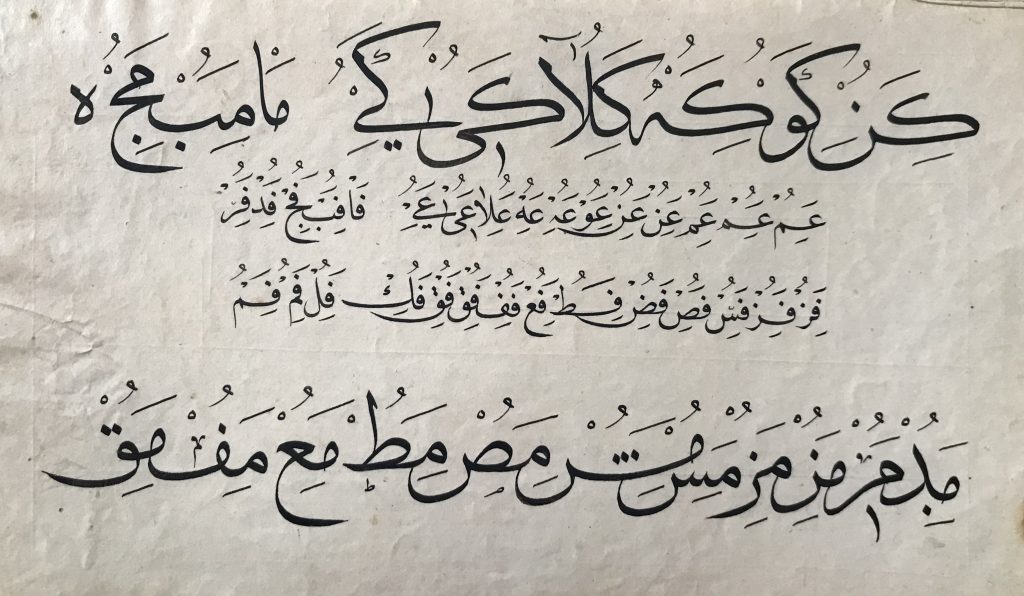 كن كو كه كلا كى كے ما مب مج ه
عم عم عم عن عن عو عه عه علا عى عے فا فب فج فد فر
فر فر فر فس فص فض فط فع فف فق فق فك فل فم فم
مد مر مز مز مس مش مص مط مع مف مق